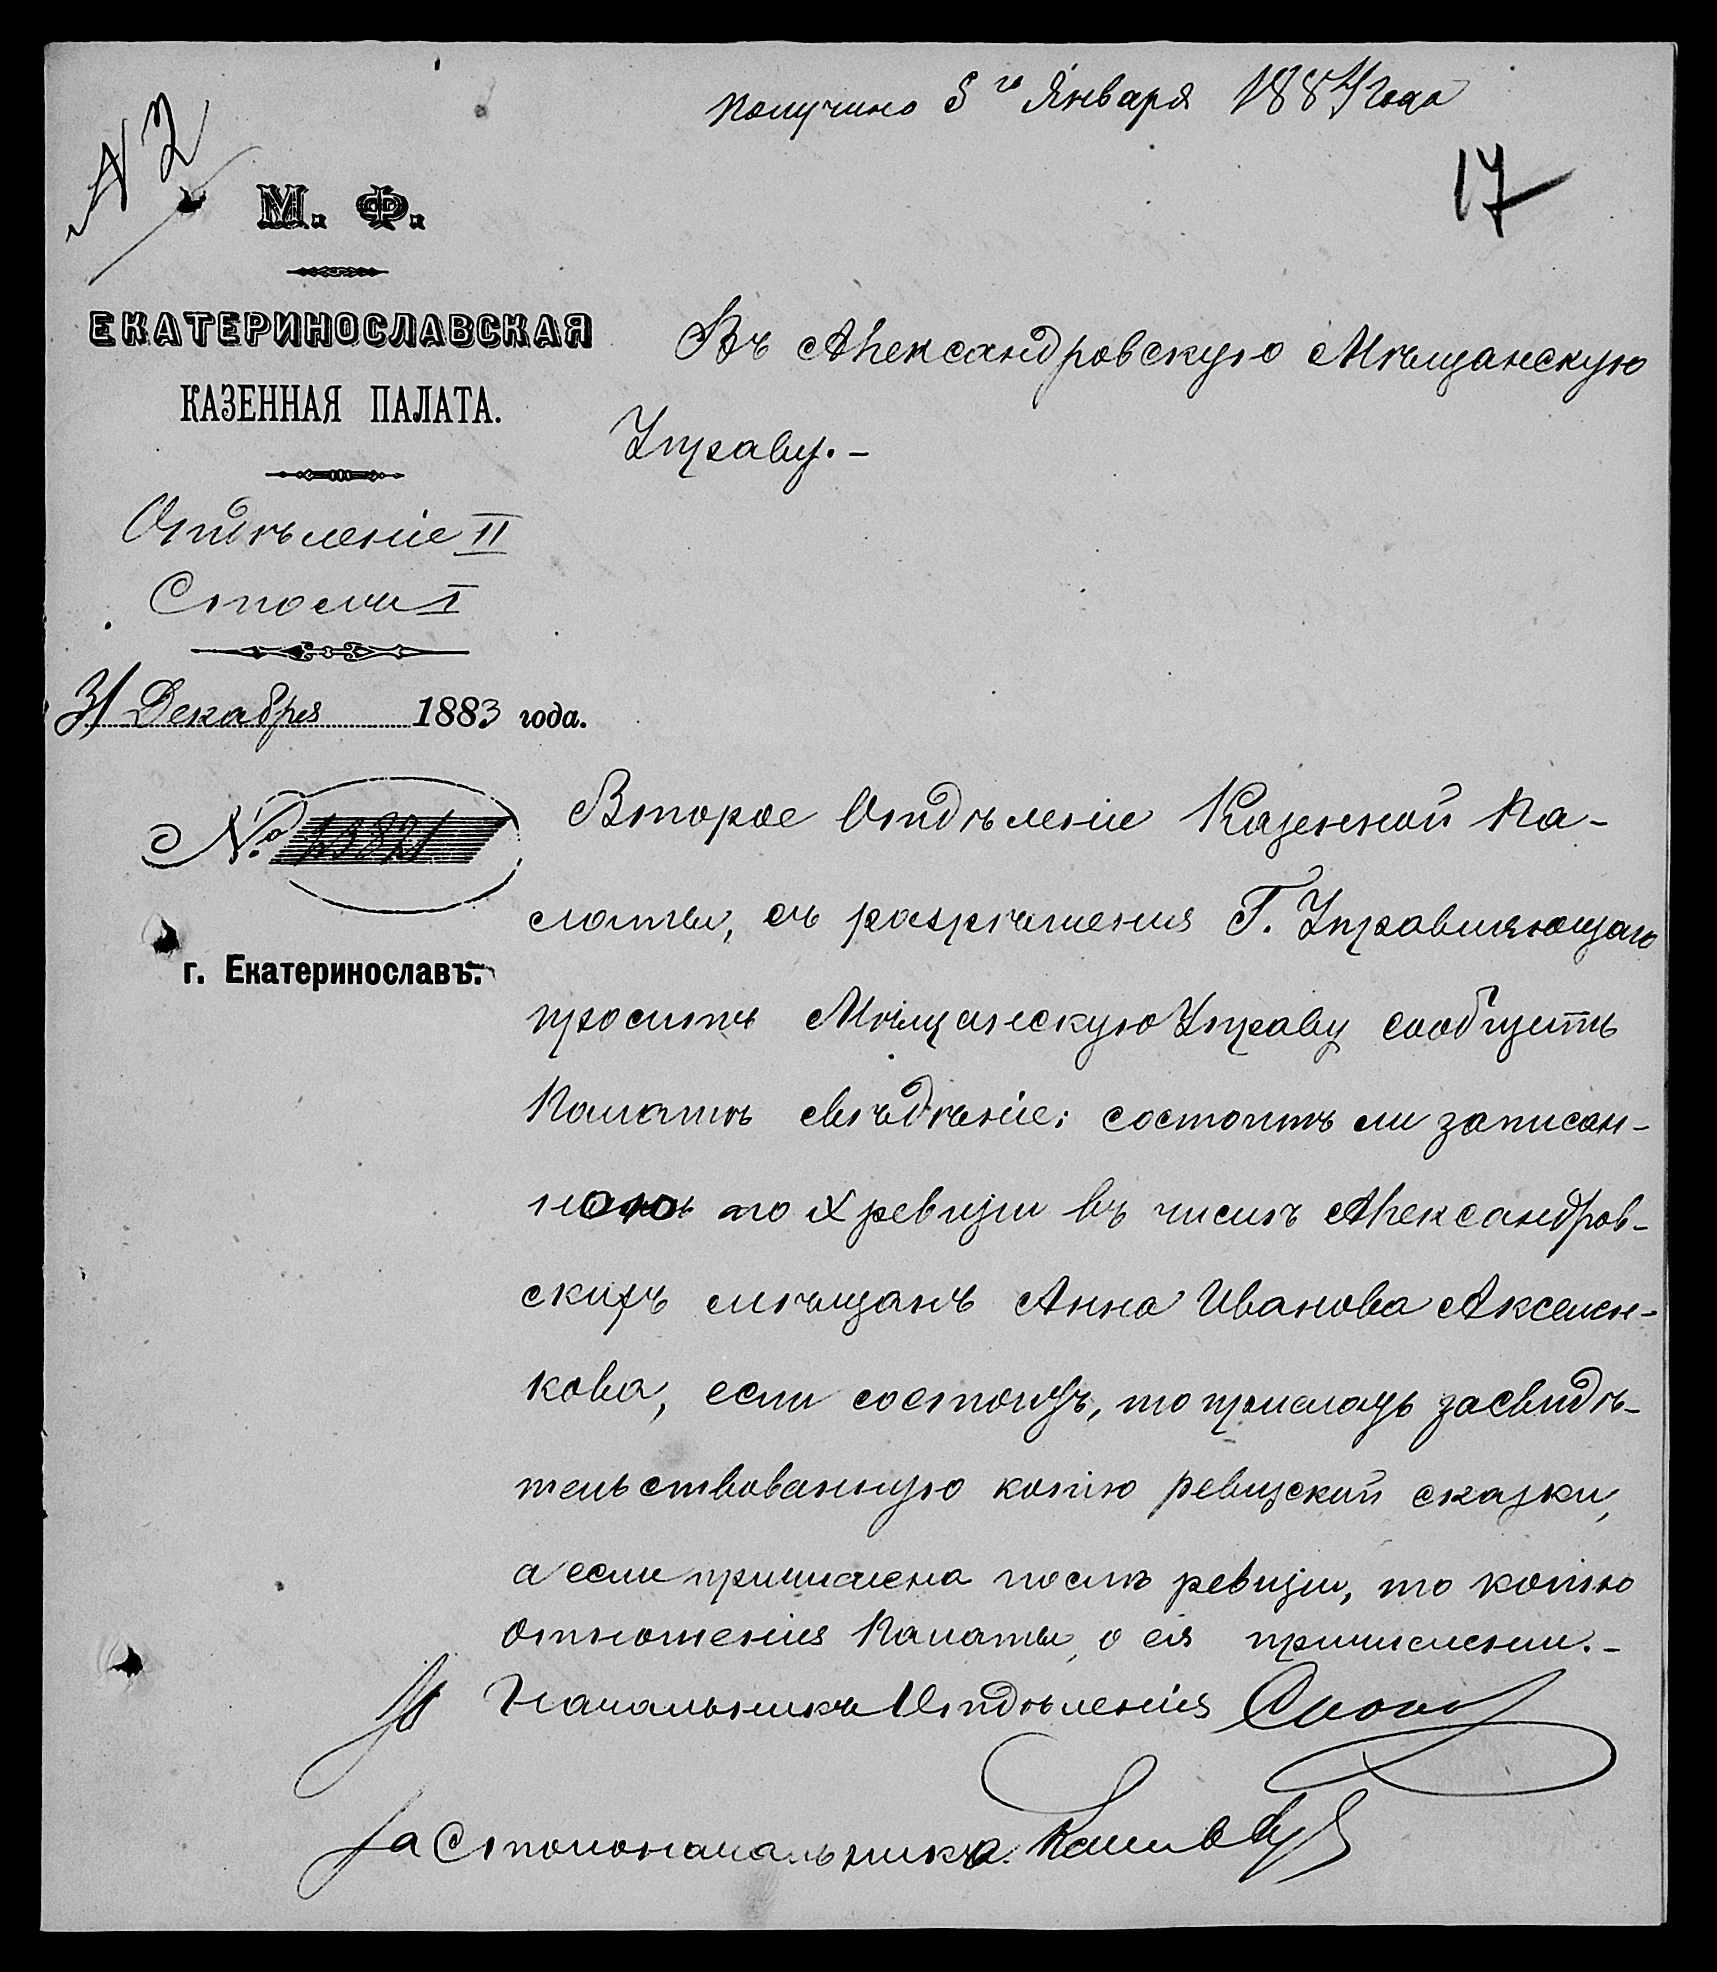 Получено 5го Января 1884 года
№ 2
17
М. Ф.
ЕКАТЕРИНОСЛАВСКАЯ
КАЗЕННАЯ ПАЛАТА.
Отдѣленіе II
Столъ I
31 Декабря 1883 года.
№ 13821
г. Екатеринославъ.
Въ Александровскую Мѣщанскую
Управу.-
Второе Отдѣленіе Казенной Па-
латы, съ разрѣшенія Г. Управляющаго
проситъ Мѣщанскую Управу сообщить
Палатѣ свѣдѣніе: состоитъ ли записан-
ною по X ревизіи въ числѣ Александров-
скихъ мѣщанъ Анна Иванова Аксен-
кова, если состоитъ, то прислать засвидѣ-
тельствованную копію ревизской сказки,
а если причислена послѣ ревизіи, то копію
отношенія Палаты, о ея причисленіи.-
Начальникъ Отдѣленія
За Столоначальника